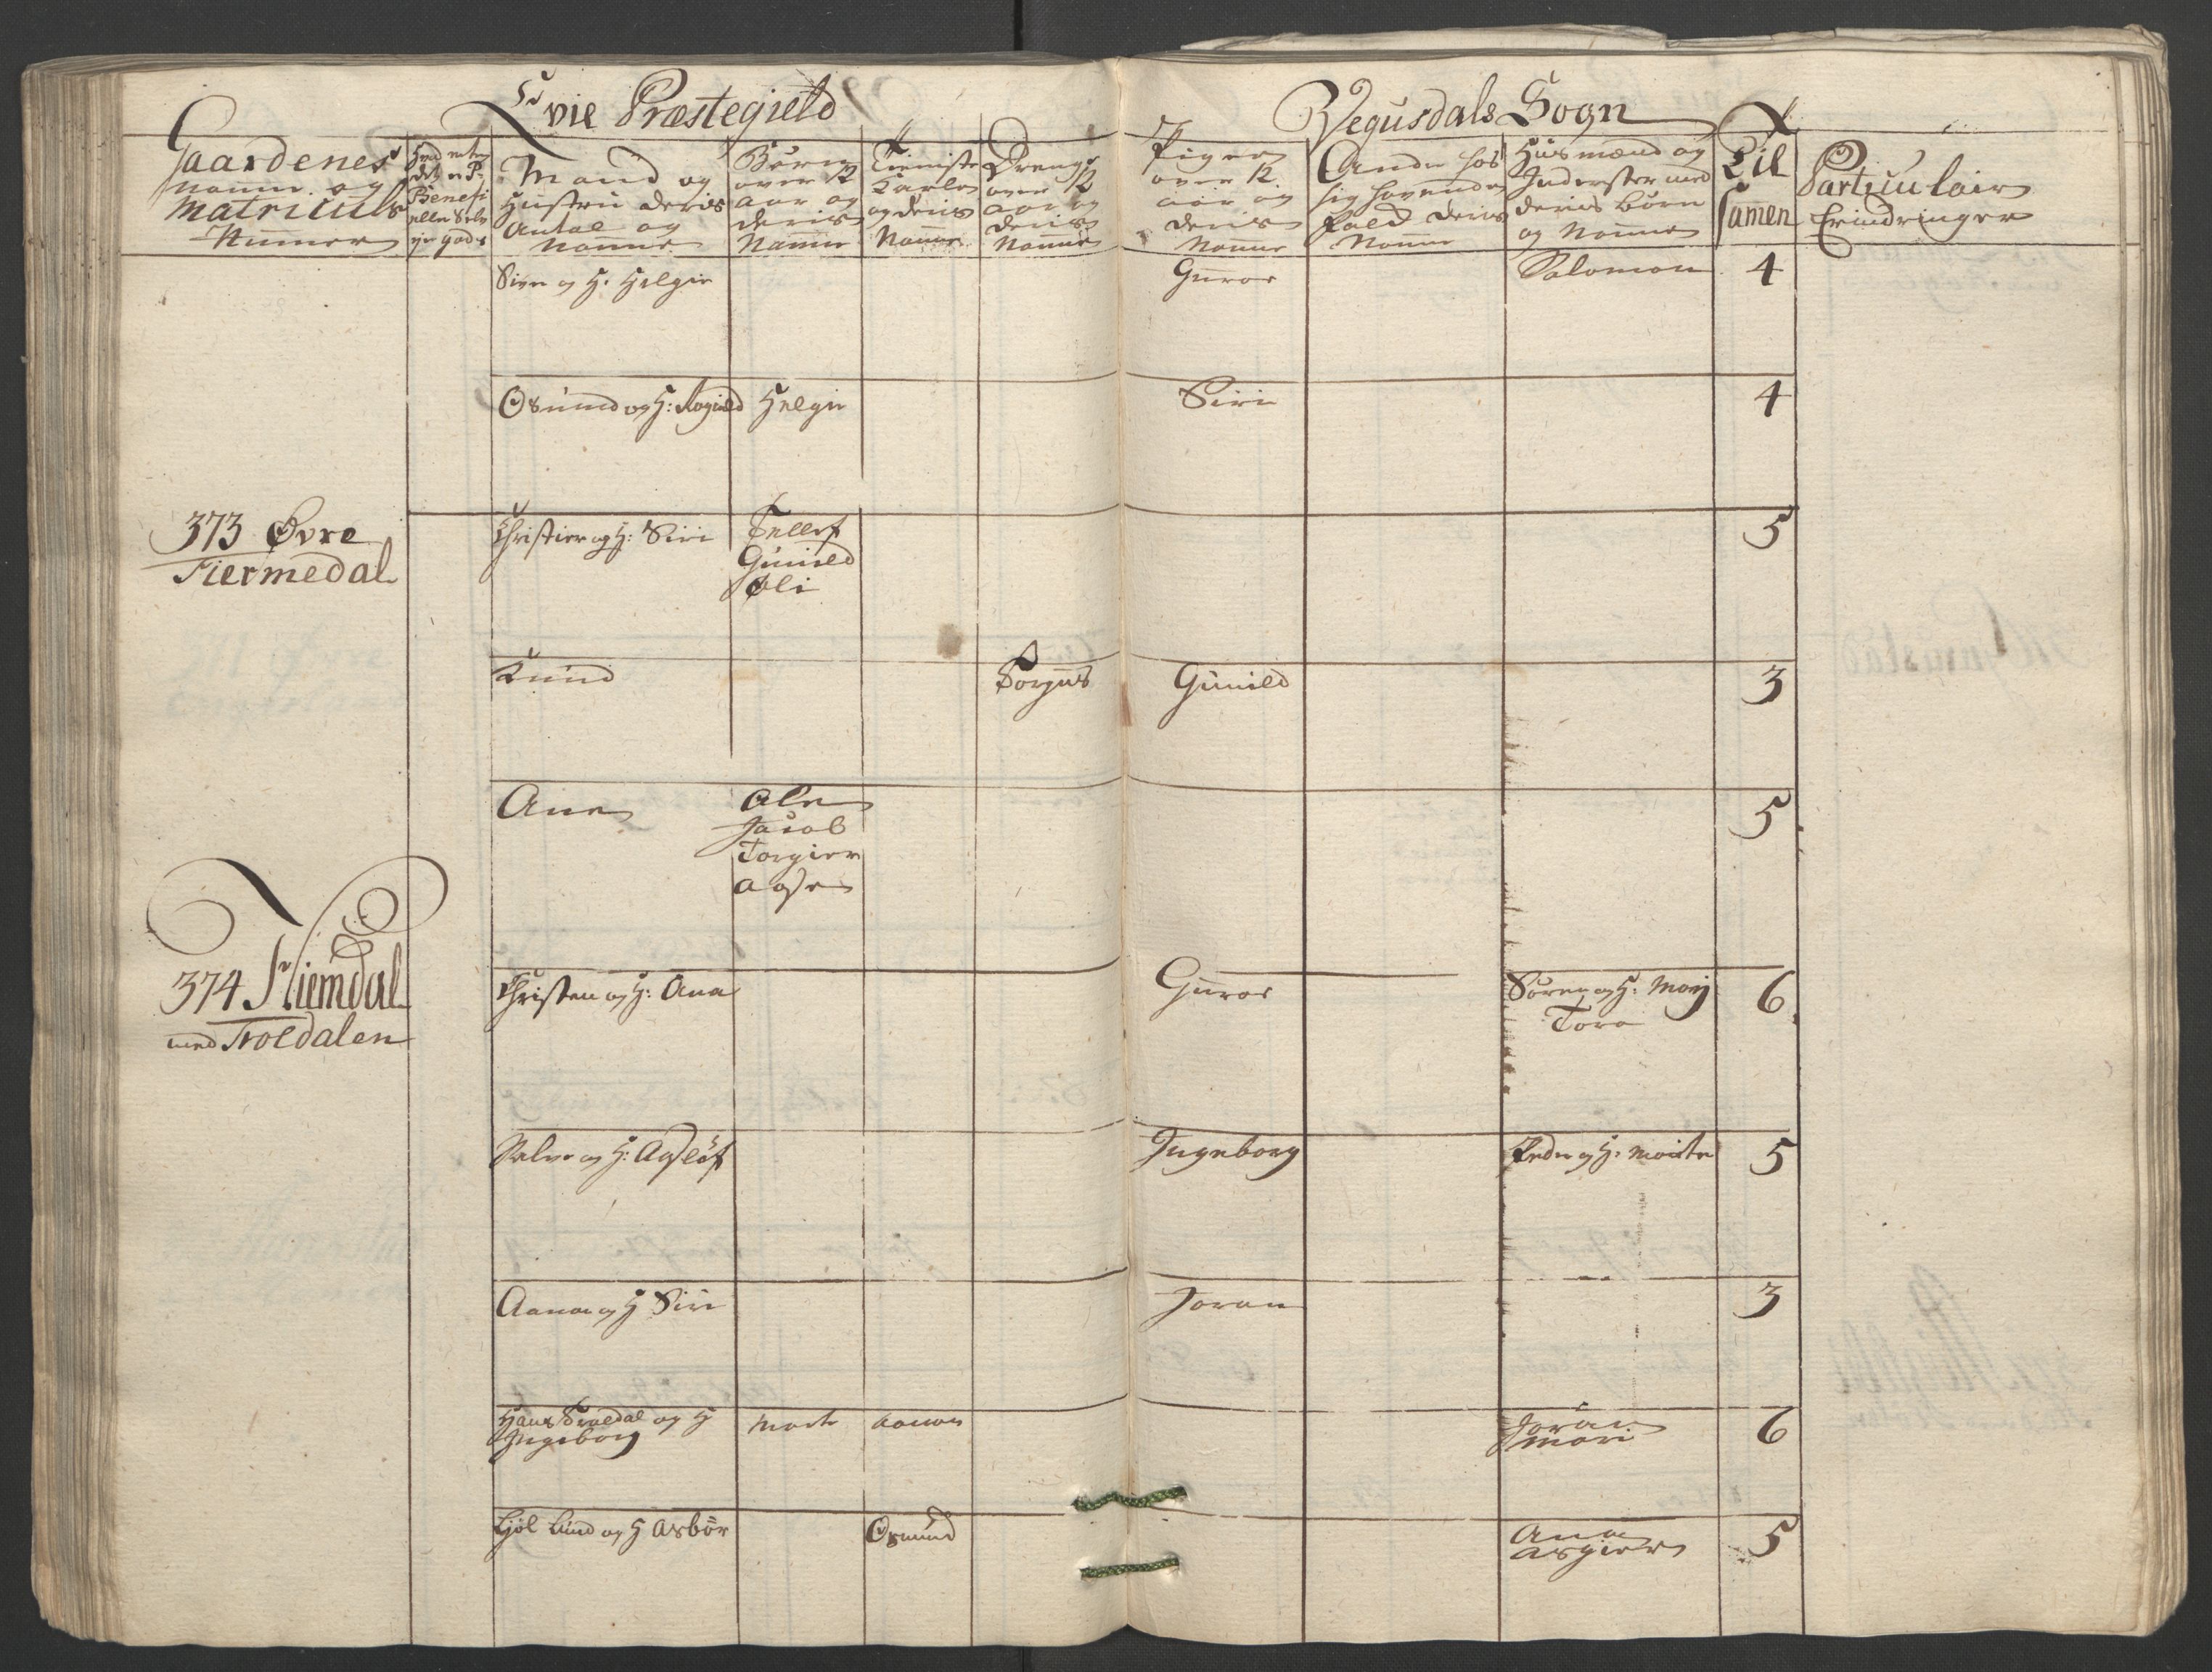 Evie Præstegield
Vegusdals Sogn
Gaardenes
Navne og
Matriculs
Numer
Mand og
Hustru deris
Antal og
Navne
Børn
over 12
aar og
deris
Navne
Tieniste
Karle
og deris
Navne
Drenge
over 12
aar og
deris
Navne
Piger
over 12
aar og
deris
Navne
Andre hos
sig havende
Folck deris
Navne
Huusmænd og
Inderster med
deris Børn
og Navne
Til
samen
Particulair
Erindringer
Siver og H: Helgie
Guroe
Salomon
4
Osmund og H: Ragnild
Helgie
Siri
4
373 Øvre
Tiermedal
Christier og H: Siri
Tellef
Gunild
Oli
5
Knud
Torjus
Gunild
3
Ane
Ole
Jacob
Torgier
Aase
5
374 Hiemdal
med Troldalen
Christen og H: Ana
Guroe
Søren og H: Mari
Tora
6
Salve og H: Aaslof
Ingeborg
Peder og H: Marite
5
Aanon og H Siri
Joran
3
Hans Troldal og H
Ingeborg
Marte
Aanon
Joran
Mari
6
Kjøl Lund og H Asbør
Osmund
Ana
Asgier
5